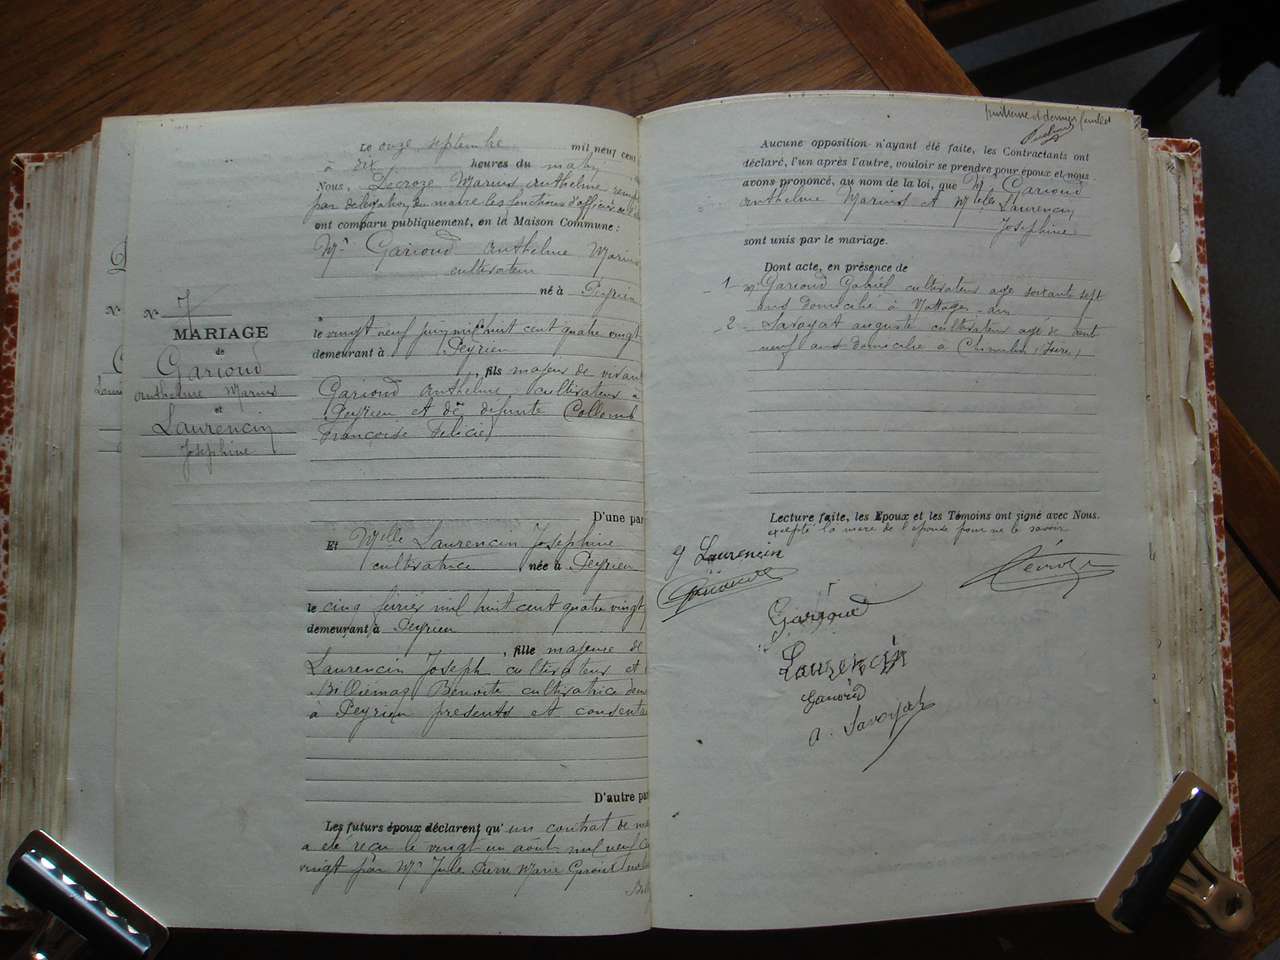 Le onze septembre mil neuf cent
à dix heures du matin
Nous, Decroze Marius Anthelme
par délégation du maire les fonctions d'officier
ont comparu publiquement, en la Maison Commune :
Mr Garioud Anthelme Marius
cultivateur
né à Peyrieu
le vingt neuf juin mil huit cent quatre vingt
demeurant à Peyrieu
, fils majeur de vivant
Garioud Anthelme cultivateur à
Peyrieu et de défunte Collomb
Françoise Felicie
D'une par
Et Melle Laurencin Josephine
cultivatrice née à Peyrieu
le cinq février mil huit cent quatre vingt
demeurant à Peyrieu
, fille majeure de
Laurencin Joseph cultivateur et
Billiemaz Benoite cultivatrice dem
à Peyrieu présents et consenta
D'autre par
Les futurs époux déclarent qu'un contrat de
a été reçu le vingt un août mil neuf
vingt par Me Jules Pierre Marie
No 7
MARIAGE
de
Garioud
Anthelme Marius
et
Laurencin
Josephine
huitième et dernier feuillet
Aucune opposition n'ayant été faite, les Contractants ont
déclaré, l'un après l'autre, vouloir se prendre pour époux et nous
avons prononcé, au nom de la loi, que Mr Garioud
Anthelme Marius et Melle Laurencin
Josephine
sont unis par le mariage.
Dont acte, en présence de
1 Mr Garioud Gabriel cultivateur age soixante sept
ans domicilié à Nattages ain
2 Savoyat auguste cultivateur agé de vent
neuf ans domicilié à Chimilin (Isère)
Lecture faite, les Epoux et les Témoins ont signé avec Nous.
excepté la mère de l'epouse pour ne le savoir
J Laurencin
Garioud
Decroze
Garioud
Laurencin
Garioud
A. Savoyat